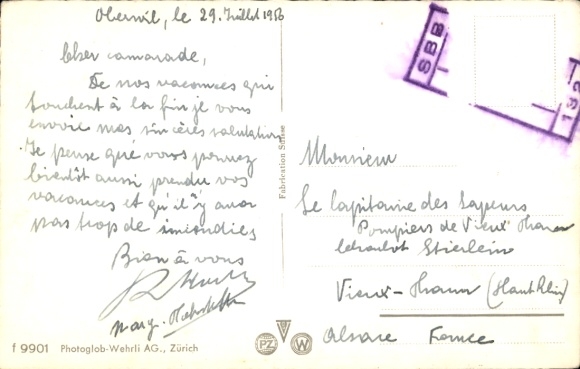 Oberwil, le 29. Juillet 1956
Cher camarade,
De nos vacances qui
touchent à la fin je vous
envoie mes sincères salutations
Je pense que vous pouvez
bientôt aussi prendre vos
vacances et qu'il y aura
pas trop de incendies
Bien à vous
Marg.
f 9901 Photoglob-Wehrli AG., Zürich
Fabrication Suisse
PZ W
SBB
192
Monsieur
Le Capitaine des Sapeurs
Pompiers de Vieux Thann
Stierlein
Vieux-Thann (Haut Rhin)
Alsace France